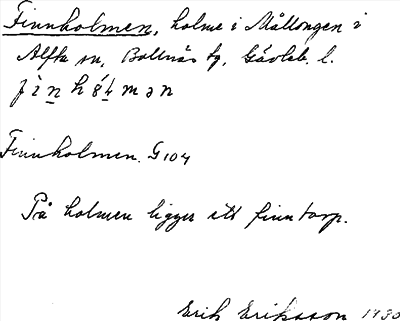 Finnholmen, holme i Mållongen i
Alfta sn, Bollnäs tg, Gävleb. l.
Finnholmen. G 104
På holmen ligger ett finntorp.
Erik Eriksson 1930